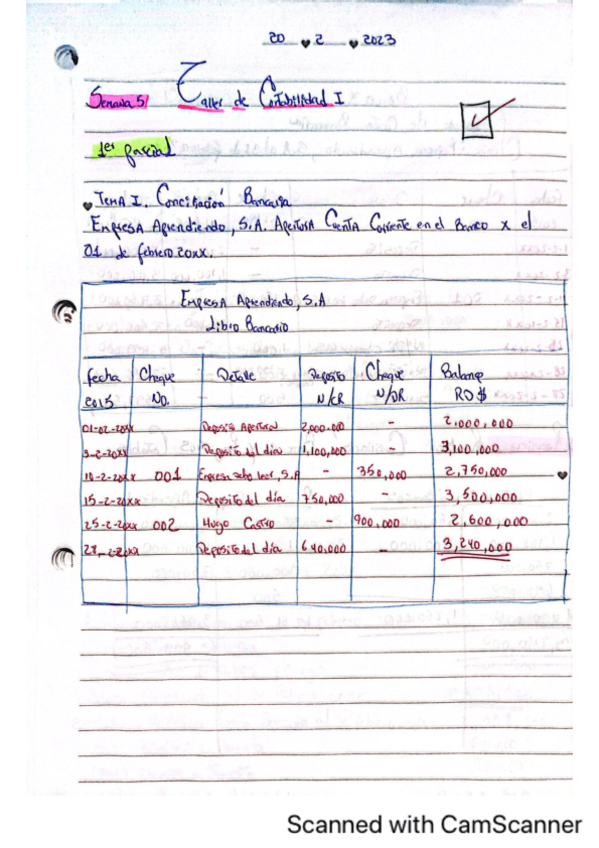 20 2 2023
Semana 5 Taller de Contabilidad I
1er parcial
Tema I. Conciliación Bancaria
Empresa Aprendiendo, S.A. Apertura Cuenta Corriente en el Banco X el
01 de febrero 20xx.
Empresa Aprendiendo, S.A
Libro Bancario
fecha Cheque Detalle Deposito Cheque Balance
2015 No. N/CR N/DR RD $
01-02-20xx Deposito Apertura 2,000.000 - 2.000,000
Deposito del día 1,100,000 - 3,100,000
10-2-20xx 001 Empresa S.A - 350,000 2,750,000
15-2-20xx Deposito del día 750,000 - 3,500,000
25-2-20xx 002 Hugo Castro - 900.000 2,600,000
28-2-20xx Deposito del día 640.000 - 3,240,000
Scanned with CamScanner